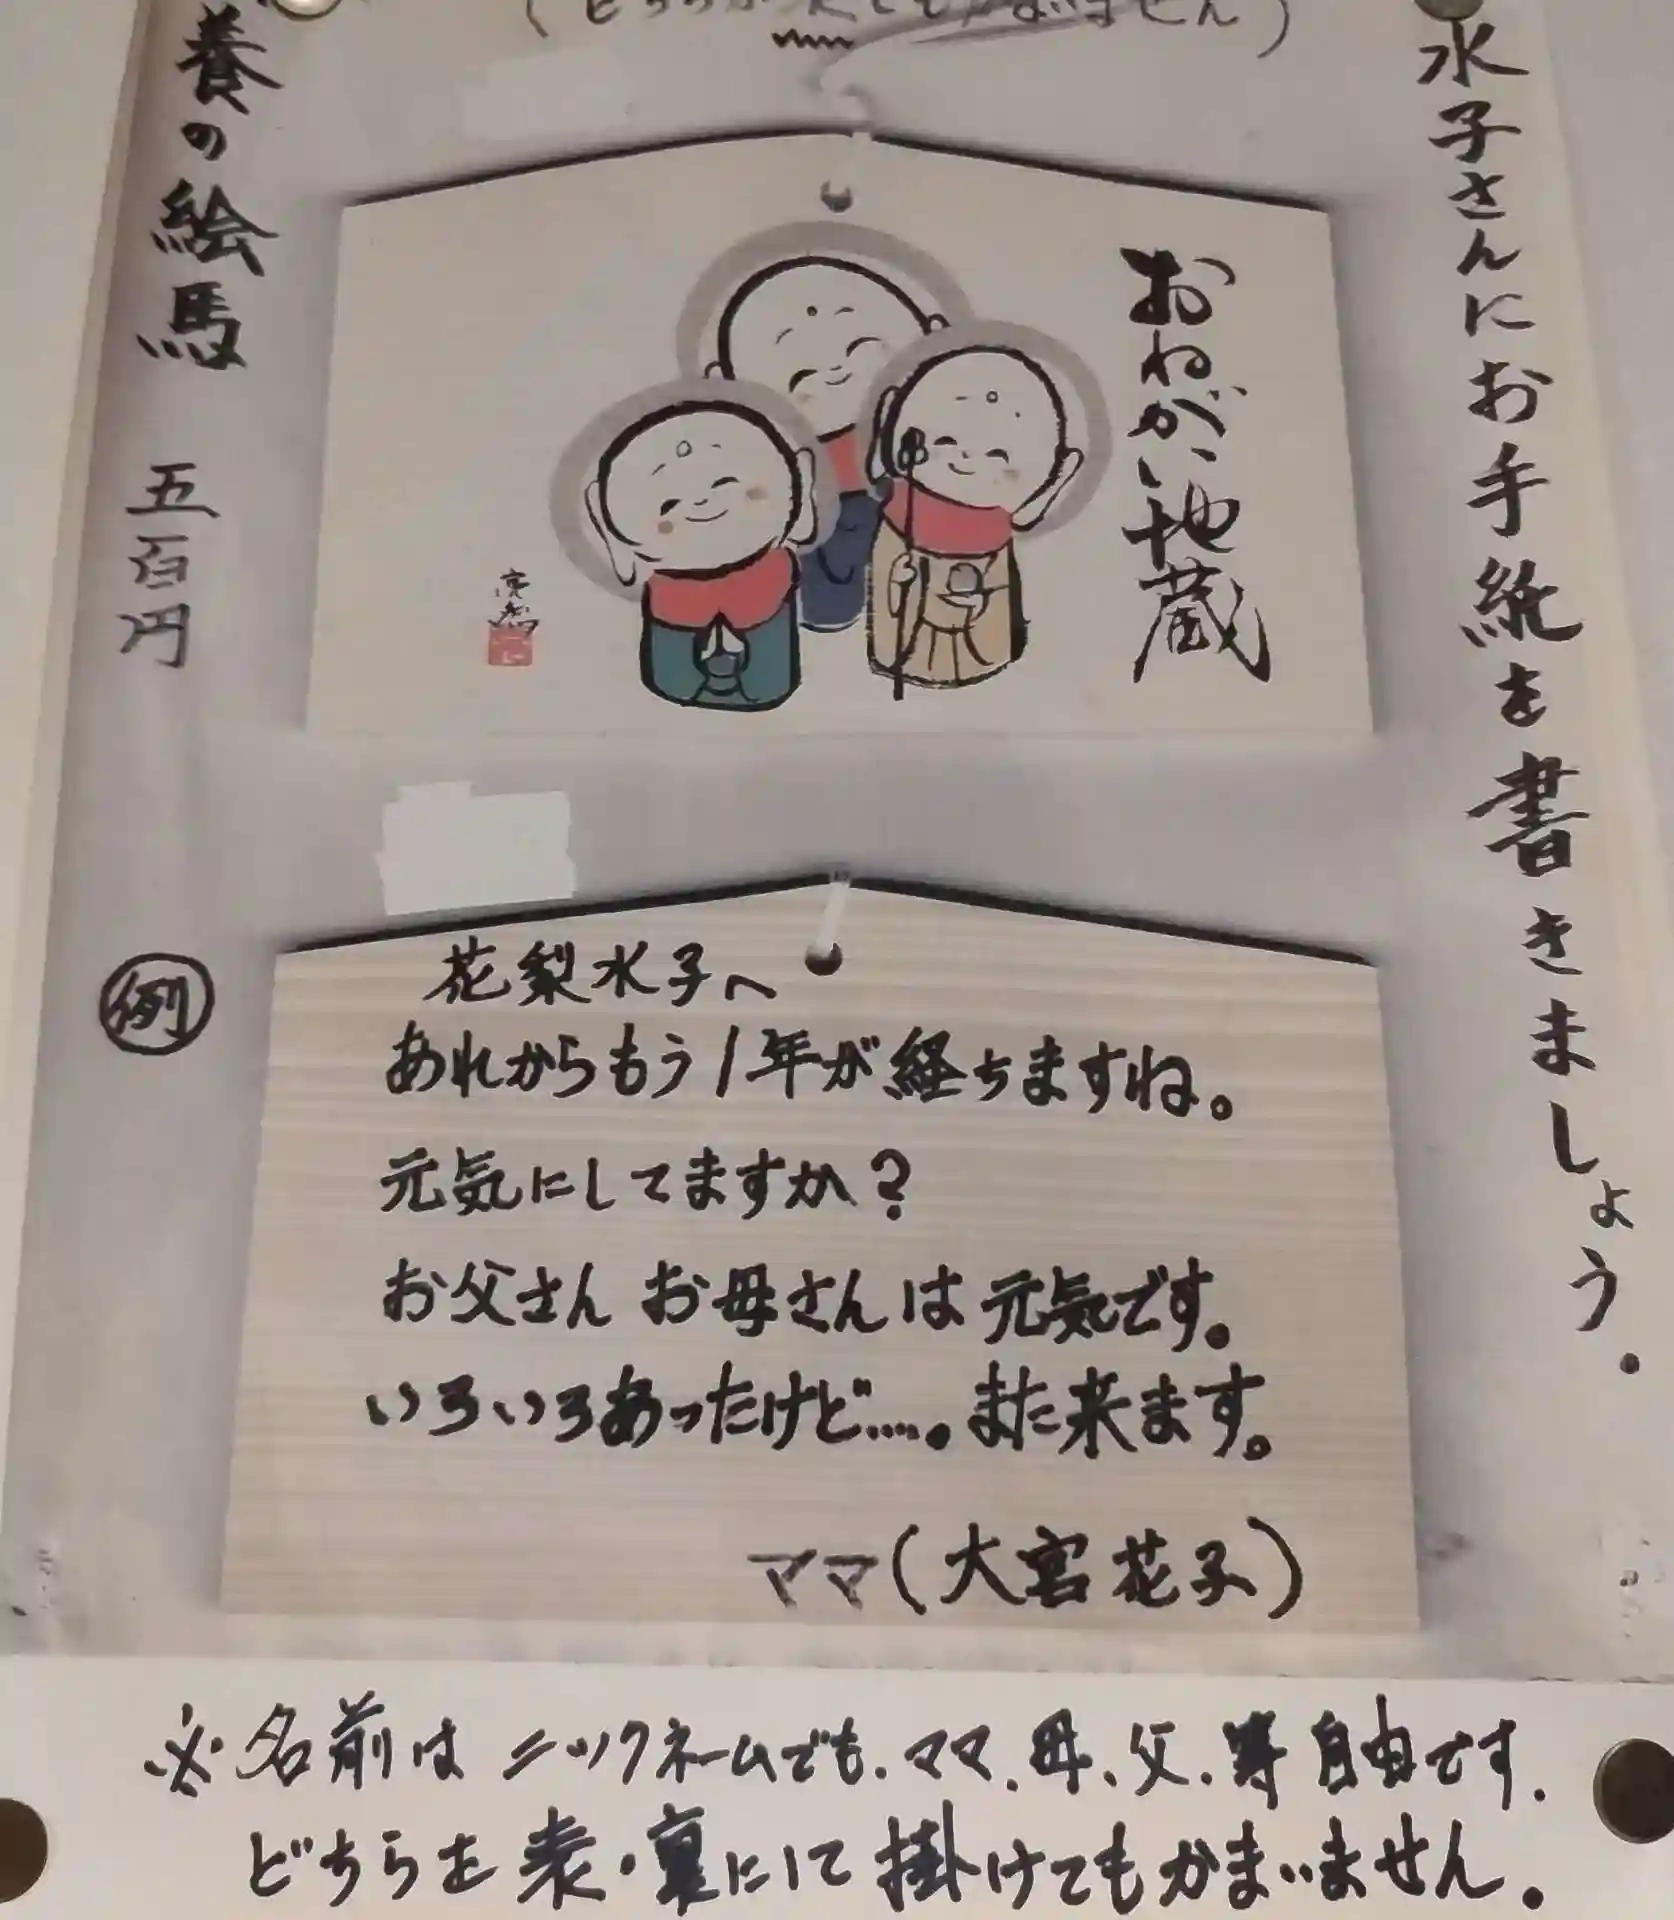 水子さんにお手紙を書きましょう.
おねがい地蔵
養の絵馬 五百円
例
花梨水子へ
あれからもう1年が経ちますね。
元気にしてますか?
お父さん お母さんは元気です。
いろいろあったけど....。また来ます。
ママ(大宮花子)
※名前はニックネームでも、ママ、母、父、等自由です.
どちらを表・裏にして掛けてもかまいません。